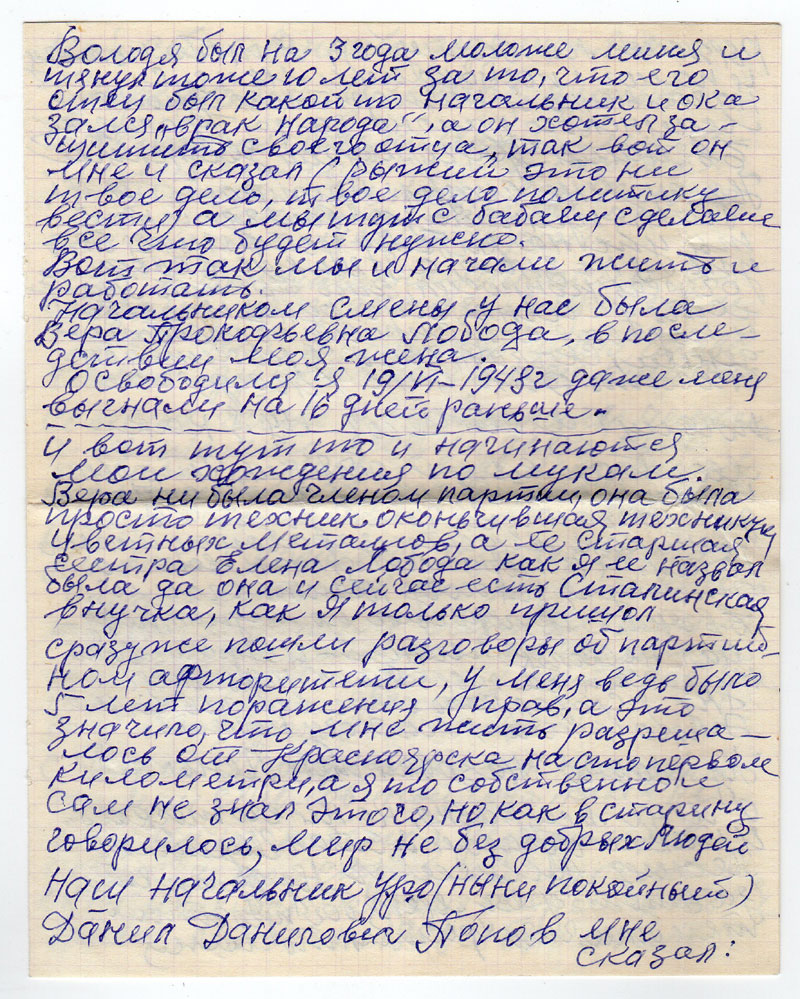 Володя был на 3 года моложе миня и
тянул тоже 10 лет за то, что его
отец был какой то начальник и ока
зался „врак народа“, а он хотел за-
щищить своего отца, так вот он
мне и сказал (рыжий это ни
твое дело, твое дело политику
вести, а мы тут с бабаем сделаем
все что будет нужно.
Вот так мы и начали жить и
работать.
Начальником смены у нас была
Вера Прокофьевна Лобода, в после-
дствии моя жена.
Освободился я 19/VI-1948г даже меня
выгнали на 16 дней раньше.
И вот тут то и начинаются
мои хождения по мукам.
Вера ни была членом партии, она была
просто техник окончившая техникум
цветных металлов, а ее старшая
сестра Елена Лобода как я ее назвал
была да она и сейчас есть Сталинская
внучка, как я только пришол
сразу же пошли разговоры об партий-
ном афторитети, у меня ведь было
5 лет поражения прав, а это
значило, что мне жить разреша-
лось от Красноярска на сто первом
километри, а я то собственно и
сам не знал этого, но как в старину
говорилось, мир не без добрых людей
наш начальник УРО (ныни покойный)
Данил Данилович Попов мне
сказал: